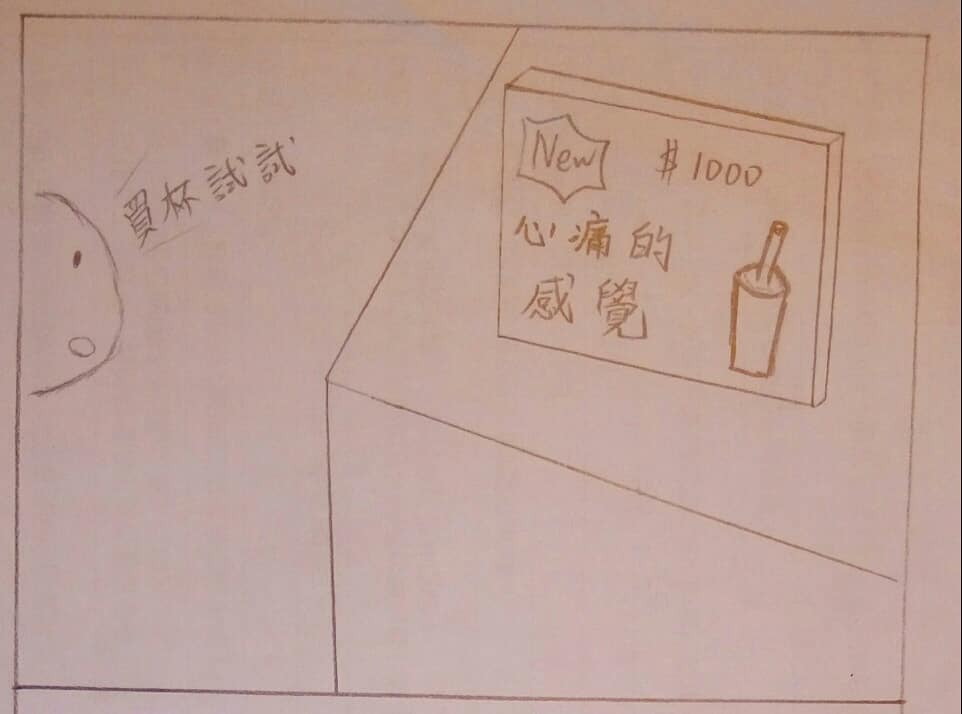 買杯試試
New $1000
心痛的
感覺